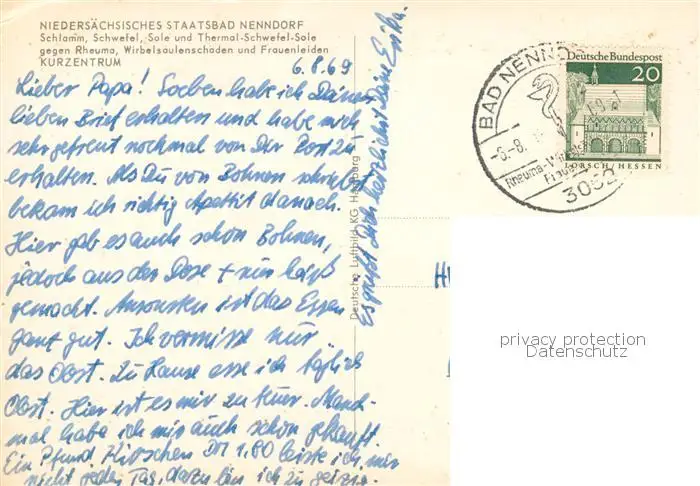 NIEDERSÄCHSISCHES STAATSBAD NENNDORF
Schlamm, Schwefel, Sole und Thermal-Schwefel-Sole
gegen Rheuma, Wirbelsäulenschäden und Frauenleiden
KURZENTRUM
6.8.69
Lieber Papa! Soeben habe ich Deinen
lieben Brief erhalten und habe mich
sehr gefreut nochmal von Dir Post zu
erhalten. Als Du von Bohnen schriebst
bekam ich richtig Appetit danach.
Hier gab es auch schon Bohnen,
jedoch aus der Dose + nur heiß
gemacht. Ansonsten ist das Essen
ganz gut. Ich vermisse nur
das Obst. Zu Hause esse ich täglich
Obst. Hier ist es mir zu teuer. Manch-
mal habe ich mir auch schon gekauft.
Ein Pfund Kirschen DM 1,80 leiste ich mir
nicht jeden Tag, dazu bin ich zu geizig.
Es grüßt Dich herzlichst Deine Erika.
Deutsche Luftbild KG Hamburg
BAD NENNDO
-6.-8.
Rheuma-
Frauen
3052
Deutsche Bundespost
20
LORSCH/HESSEN
privacy protection
Datenschutz